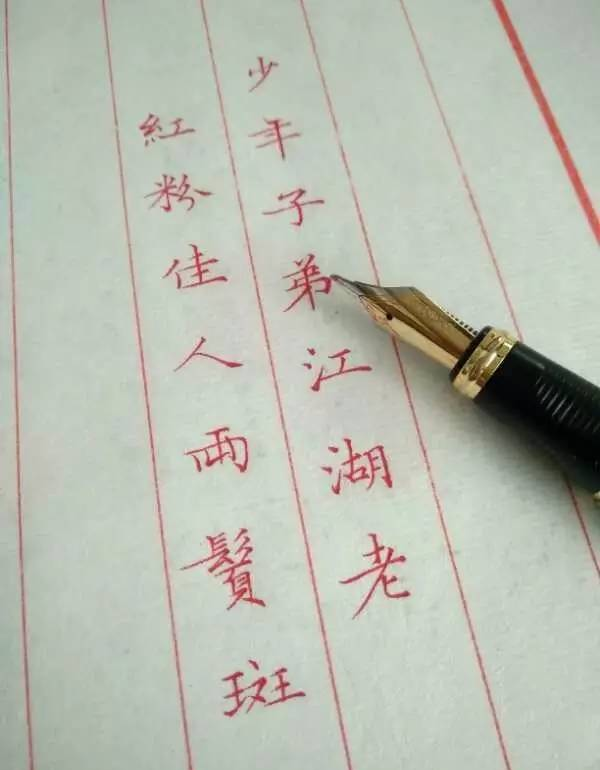 少年子弟江湖老
紅粉佳人兩鬢斑